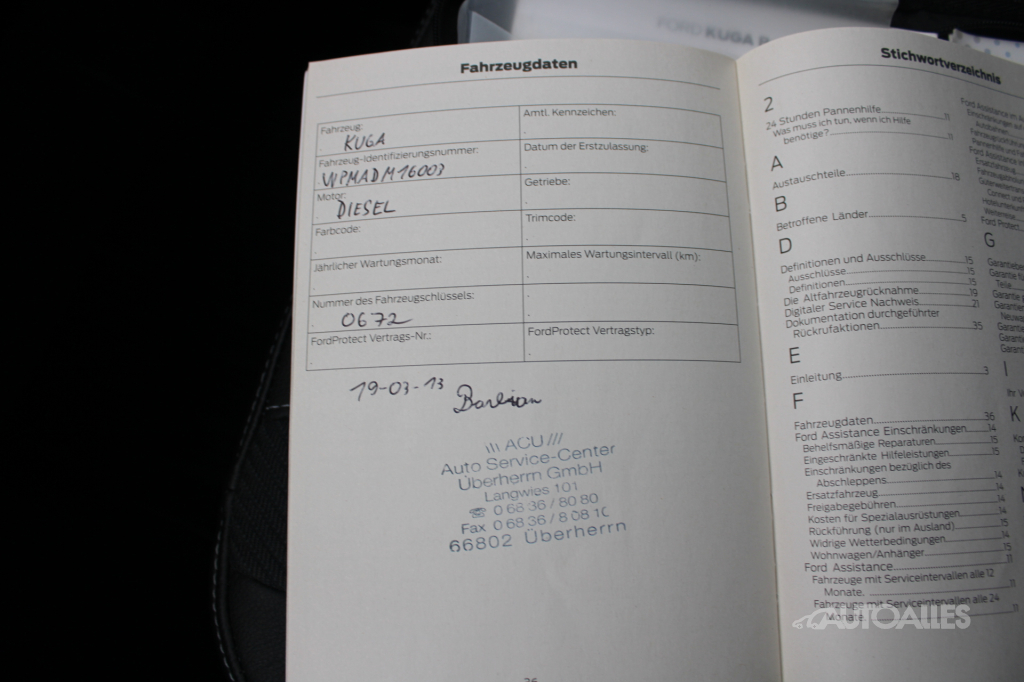 FORD KUGA
Fahrzeugdaten
Fahrzeug:
KUGA
Amtl. Kennzeichen:
Fahrzeug-Identifizierungsnummer:
WPMADM16003
Datum der Erstzulassung:
Motor:
DIESEL
Getriebe:
Farbcode:
Trimcode:
Jährlicher Wartungsmonat:
Maximales Wartungsintervall (km):
Nummer des Fahrzeugschlüssels:
0672
FordProtect Vertrags-Nr.:
FordProtect Vertragstyp:
19-03-13
\\\ ACU ///
Auto Service-Center
Überherrn GmbH
Langwies 101
☎ 0 68 36 / 80 80
Fax 0 68 36 / 8 08 10
66802 Überherrn
Stichwortverzeichnis
2
24 Stunden Pannenhilfe 11
Was muss ich tun, wenn ich Hilfe
benötige? 11
A
Austauschteile 18
B
Betroffene Länder 5
D
Definitionen und Ausschlüsse 15
Ausschlüsse 15
Definitionen 15
Die Altfahrzeugrücknahme 19
Digitaler Service Nachweis 21
Dokumentation durchgeführter
Rückrufaktionen 35
E
Einleitung 3
F
Fahrzeugdaten 36
Ford Assistance Einschränkungen 14
Behelfsmäßige Reparaturen 15
Eingeschränkte Hilfeleistungen 15
Einschränkungen bezüglich des
Abschleppens 14
Ersatzfahrzeug 14
Freigabegebühren 14
Kosten für Spezialausrüstungen 14
Rückführung (nur im Ausland) 15
Widrige Wetterbedingungen 14
Wohnwagen/Anhänger 15
Ford Assistance 11
Fahrzeuge mit Serviceintervallen alle 12
Monate. 11
Fahrzeuge mit Serviceintervallen alle 24
Monate. 11
G
I
K
AUTOALLES